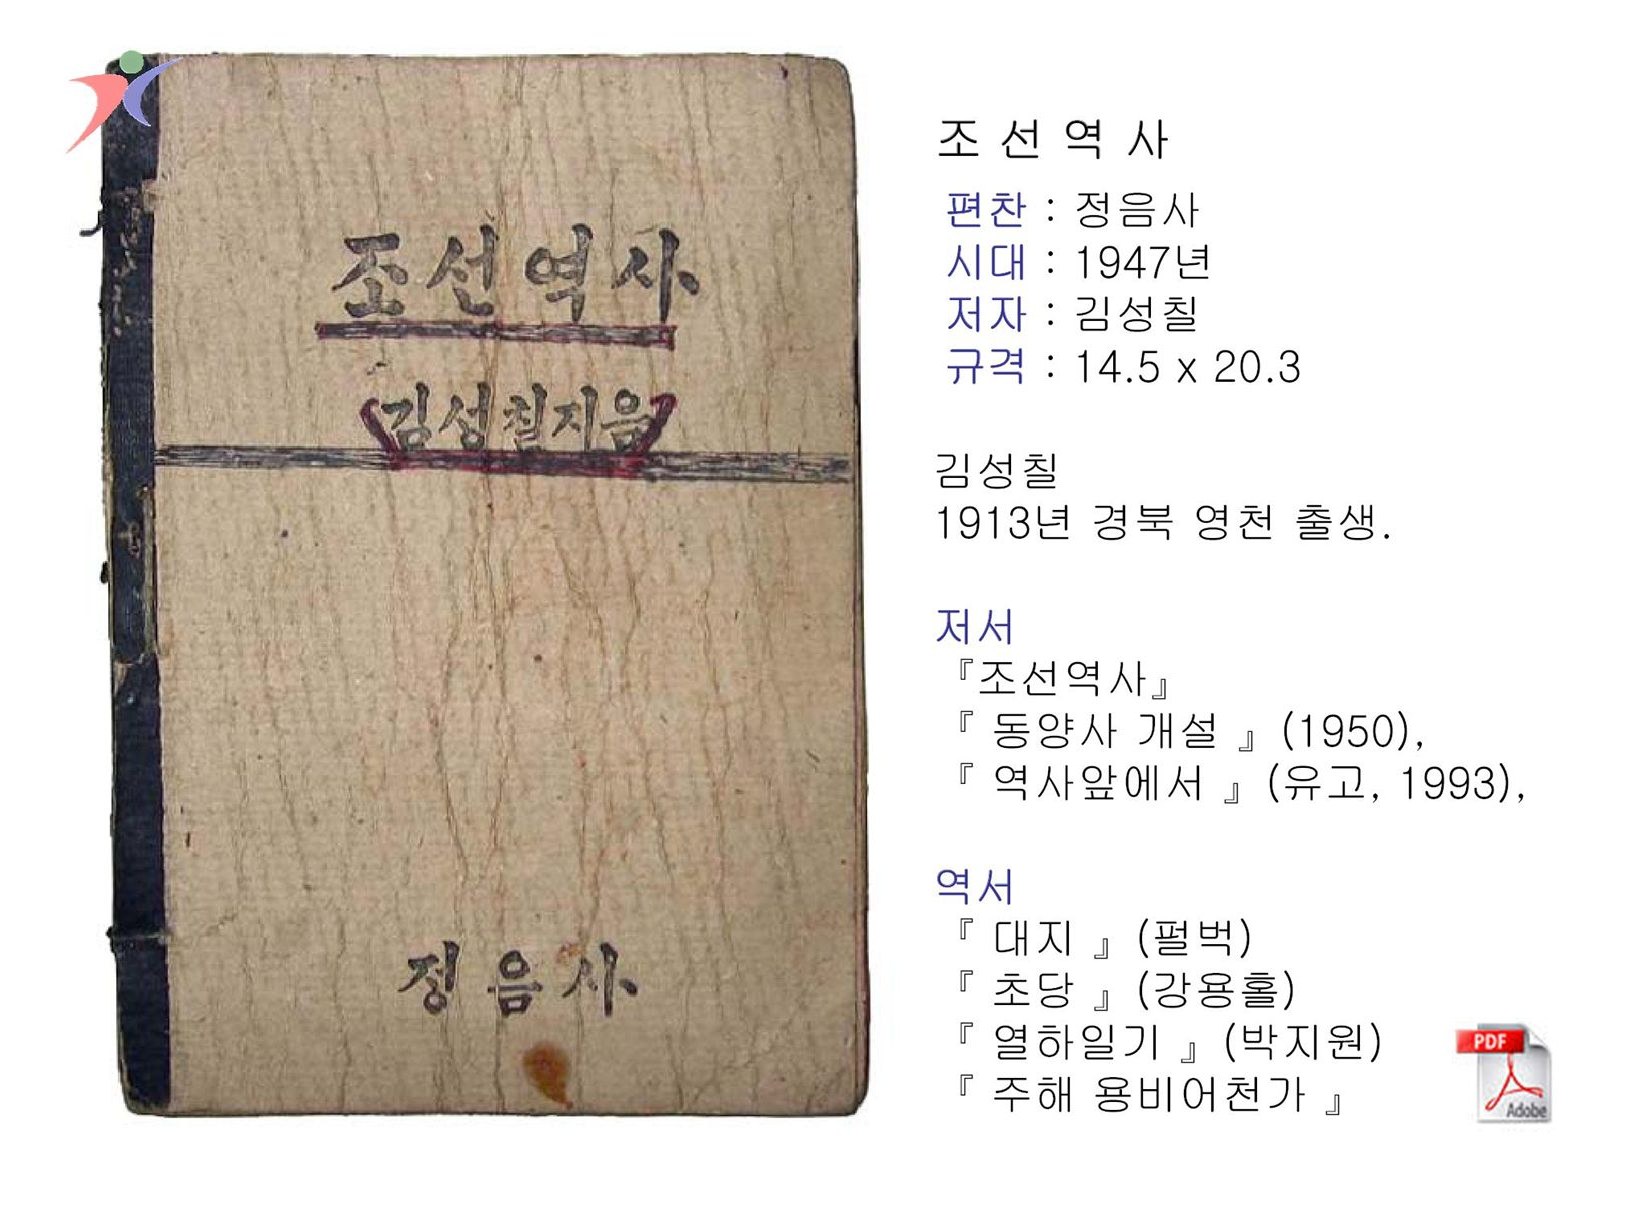 조선역사
김성칠지음
정음사
조 선 역 사
편찬 : 정음사
시대 : 1947년
저자 : 김성칠
규격 : 14.5 x 20.3
김성칠
1913년 경북 영천 출생.
저서
『조선역사』
『 동양사 개설 』 (1950),
『 역사앞에서 』 (유고, 1993),
역서
『 대지 』 (펄벅)
『 초당 』 (강용홀)
『 열하일기 』 (박지원)
『 주해 용비어천가 』
PDF
Adobe